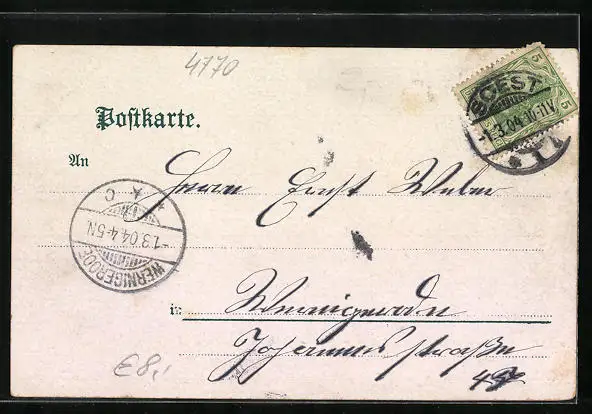 4770
Postkarte.
5
5
SOEST
1.3.04.10-11V.
An
Herrn Ernst Weber
WERNIGERODE
-1.3.04.4-5N.
A C
in Wernigerode
Johannesstraße
€8,-